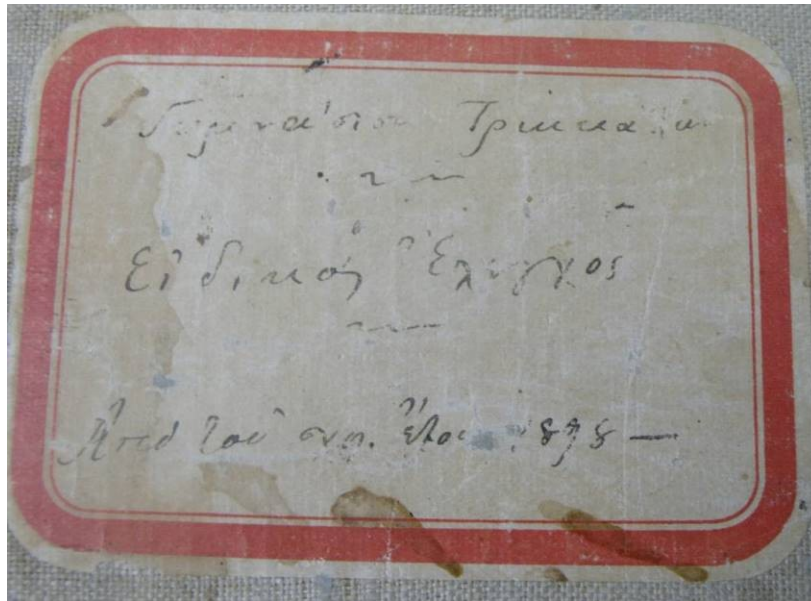 Γυμνάσιον Τρικκάλων
Εἰδικὸς Ἔλεγχος
Ἀπὸ τοῦ σχολ. ἔτους 1898 —